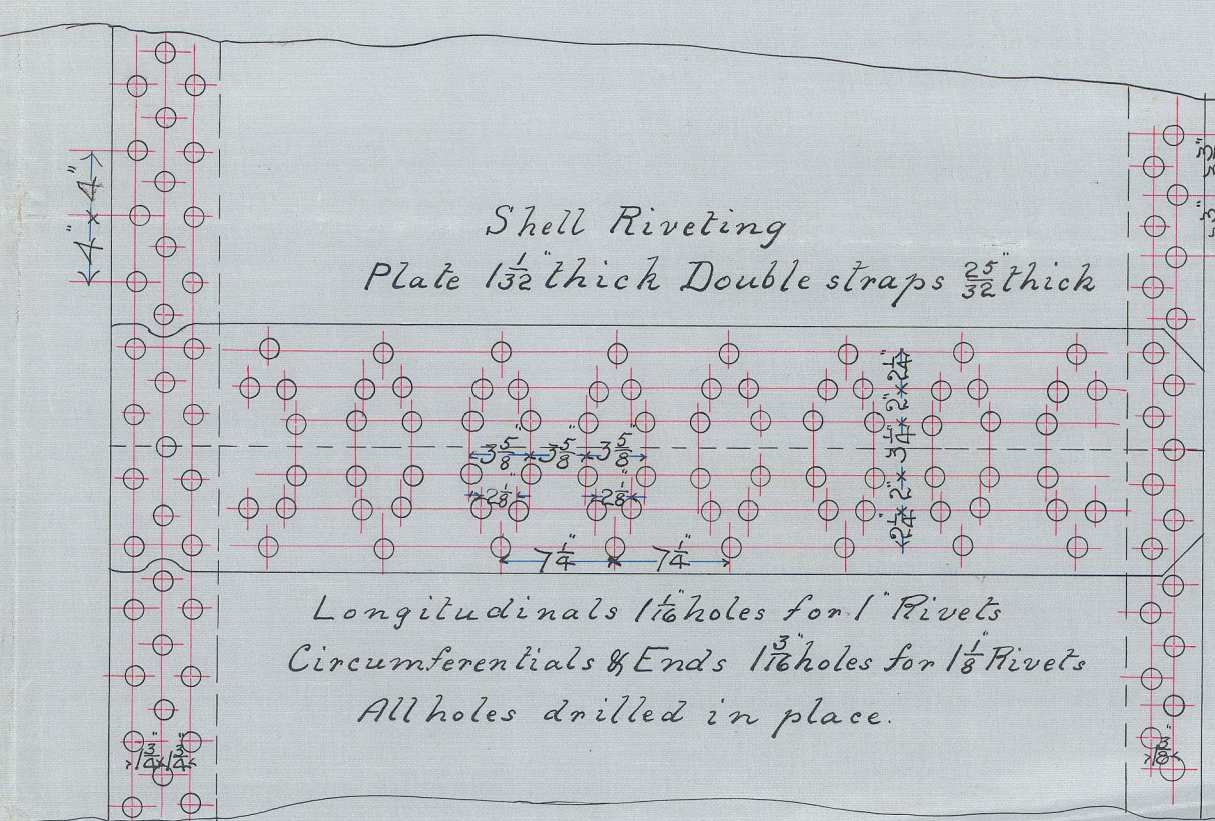 Shell Riveting
Plate 1 1/32" thick Double straps 25/32" thick
4" × 4"
2 1/4" × 2" × 3 1/4" × 2" × 2 1/4"
3 5/8" 3 5/8" 3 5/8"
2 1/8" 2 1/8"
7 1/4" × 7 1/4"
Longitudinals 1 1/16" holes for 1" Rivets
Circumferentials & Ends 1 3/16" holes for 1 1/8" Rivets
All holes drilled in place.
1 3/4" × 1 3/4"
1 3/8"